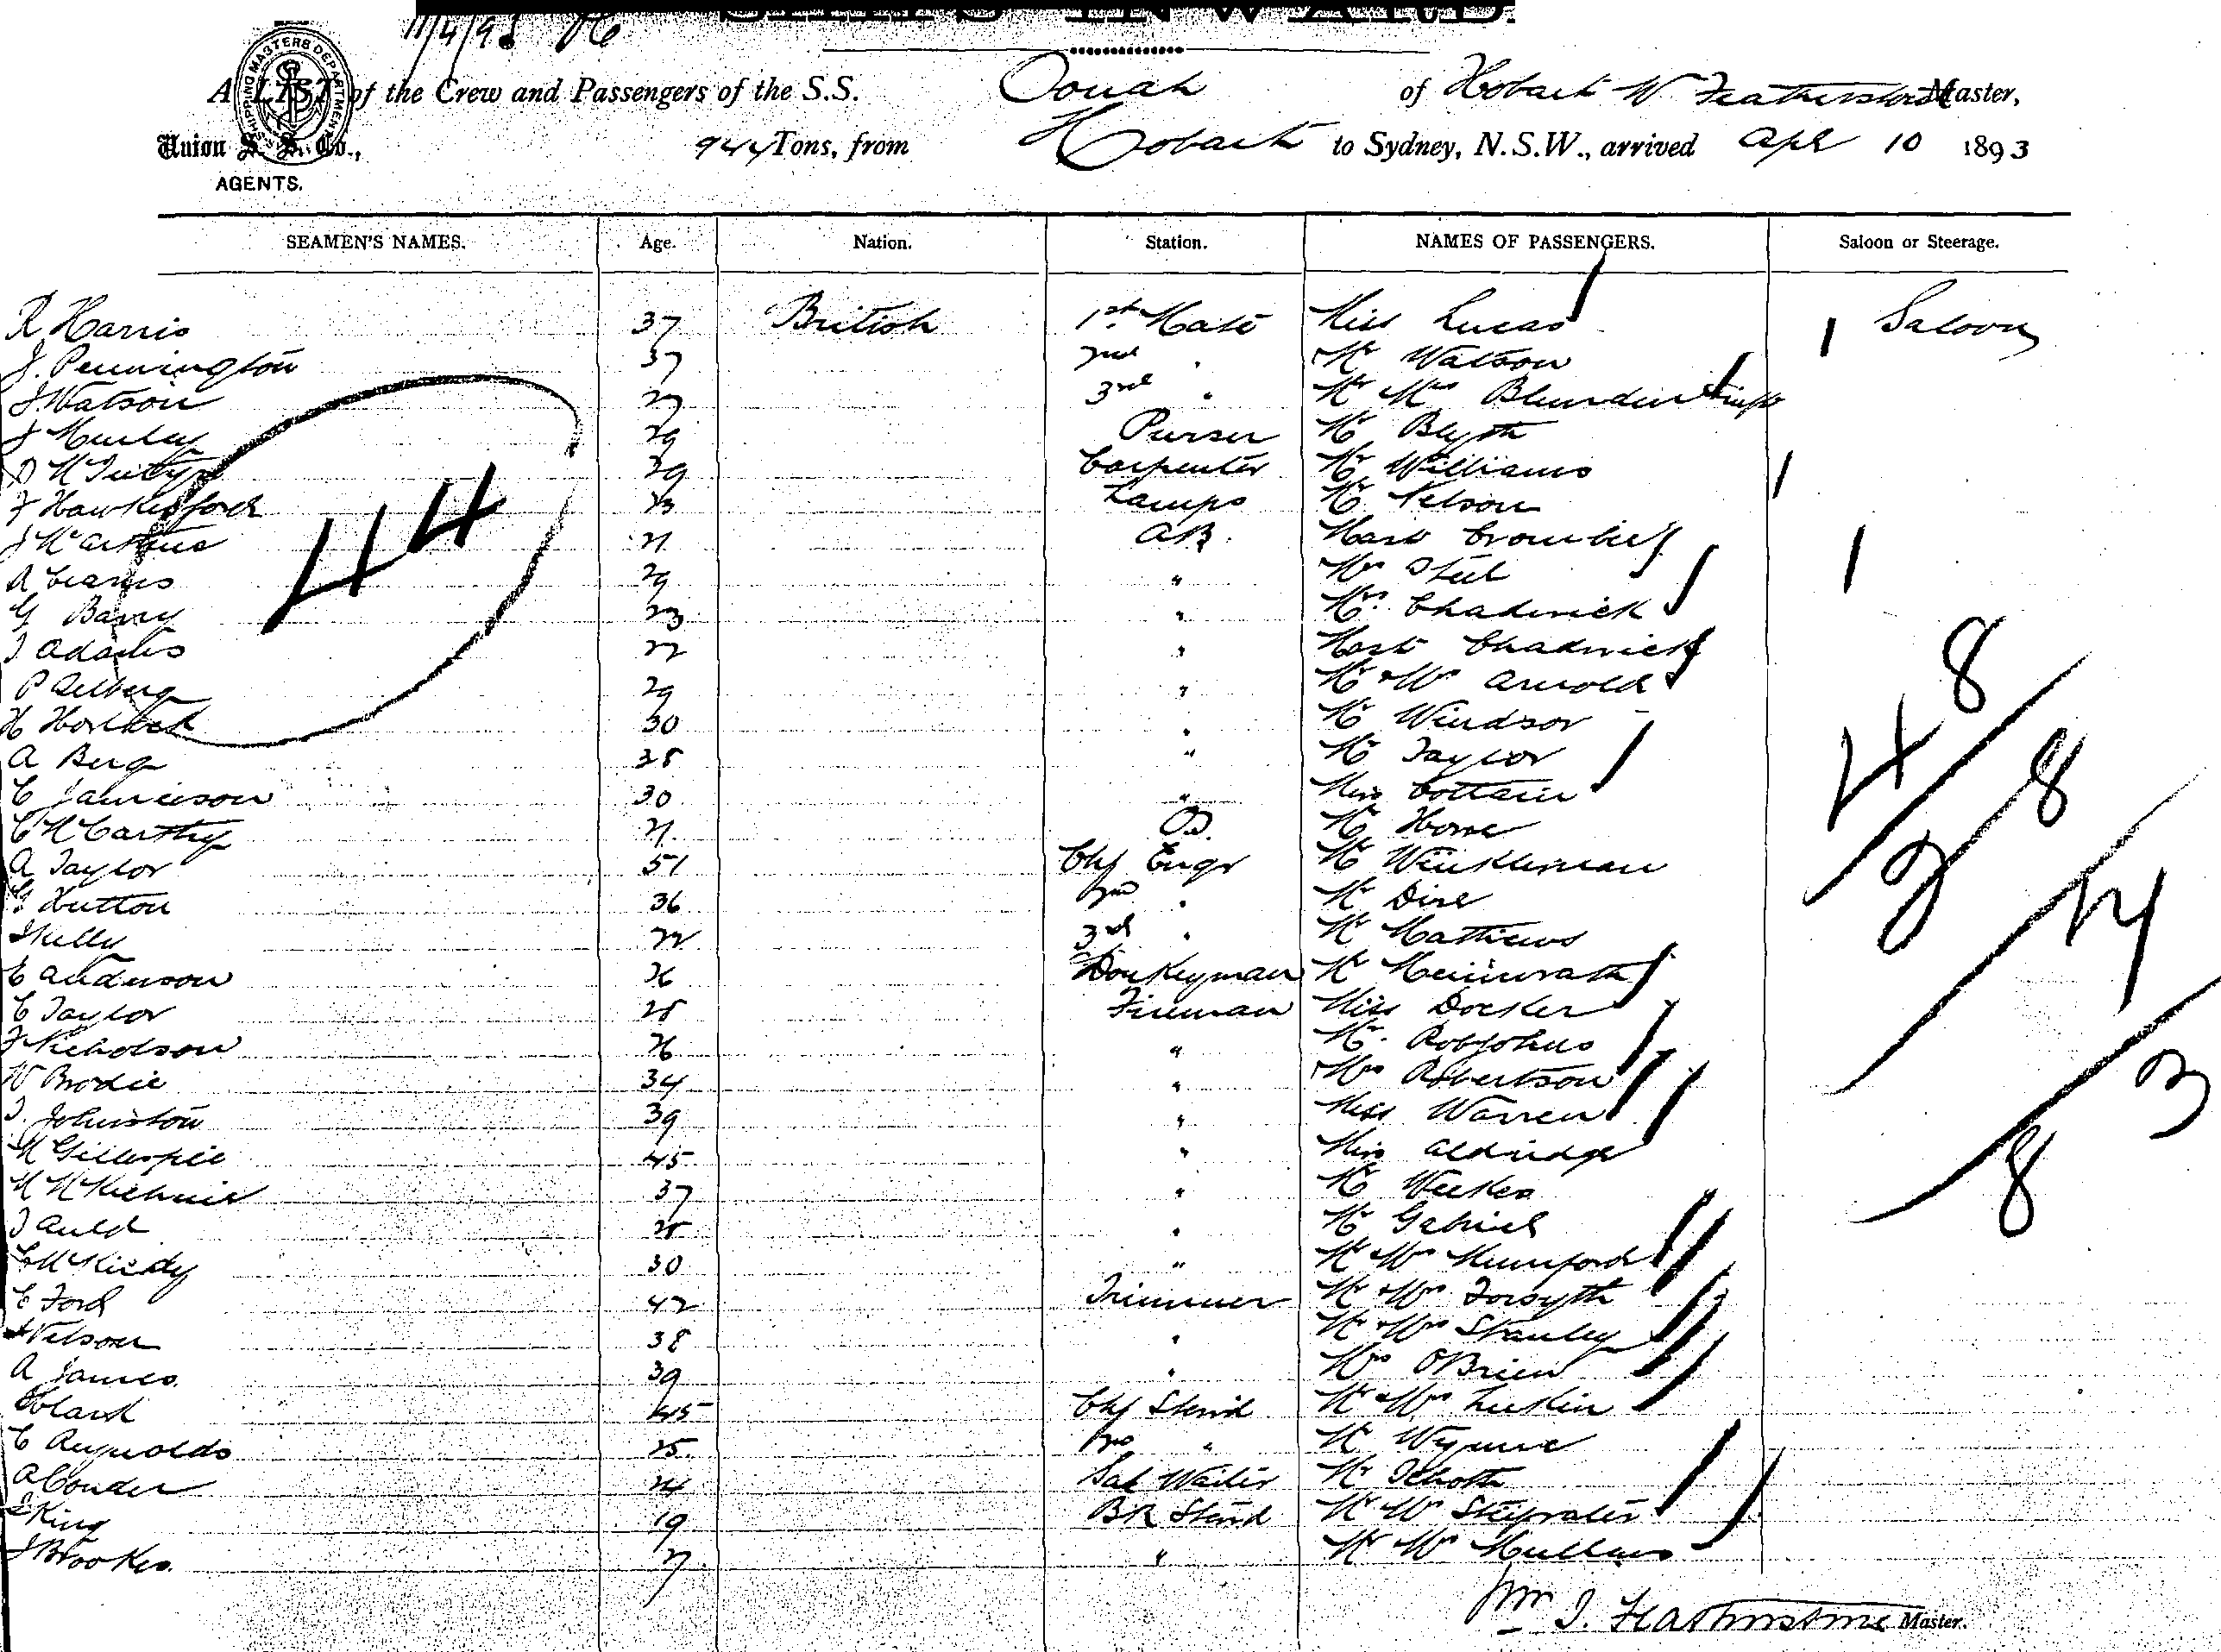 SHIPS INWARD.
11/4/93
SHIPPING MASTERS DEPARTMENT
A LIST of the Crew and Passengers of the S.S. Oonah of Hobart W Featherstone Master,
Union S. S. Co., 944 Tons, from Hobart to Sydney, N.S.W., arrived Apl 10 1893
AGENTS.
SEAMEN'S NAMES. Age. Nation. Station. NAMES OF PASSENGERS. Saloon or Steerage.
R Harris 37 British 1st Mate Miss Lucas 1 Saloon
J. Pennington 37 2nd " Mr Watson
J. Watson 27 3rd " Mr Mrs
J 29 Purser Mr Blyth
D 29 Carpenter Mr Williams
F Hawkesford 23 Lamps Mr Nelson
J McArthur 21 AB. Mast Crombie
A 29 " Mrs Steel
G Barry 23 " Mrs Chadwick
J Adams 22 " Mast Chadwick
P 29 " Mr & Mrs Arnold
H 30 " Mr Windsor
A Berg 38 " Mr Taylor
C Jamieson 30 " Miss Cottam
C McCarthy 21 OS. Mr Horne
A Taylor 51 Chf Engr Mr Winkleman
G Hutton 36 2nd " Mr
Kelly 22 3rd " Mr Mathews
C Anderson 26 Donkeyman Mr
C Taylor 28 Fireman Miss Docker
F Nicholson 26 " Mr Robjohns
W Brodie 34 " Mrs Robertson
J. Johnston 39 " Miss Warren
M Gillespie 45 " Miss Aldridge
M McKechnie 37 " Mr Weekes
J Auld 28 " Mr Gabriel
30 " Mr Mrs Mumford
E Ford 42 Trimmer Mr & Mrs Forsyth
J Nelson 38 " Mr & Mrs Stanley
A James 39 " Mrs OBrien
45 Chf Stewd Mr & Mrs Luckin
C Reynolds 25 2nd " Mr Wynne
A Conder 24 Sal Waiter Mr
King 19 BR Stewd Mr Mrs
J Brookes. 27 " Mr Mrs Mullins
44
48
28
14
8
3
Wm J. Featherstone Master.